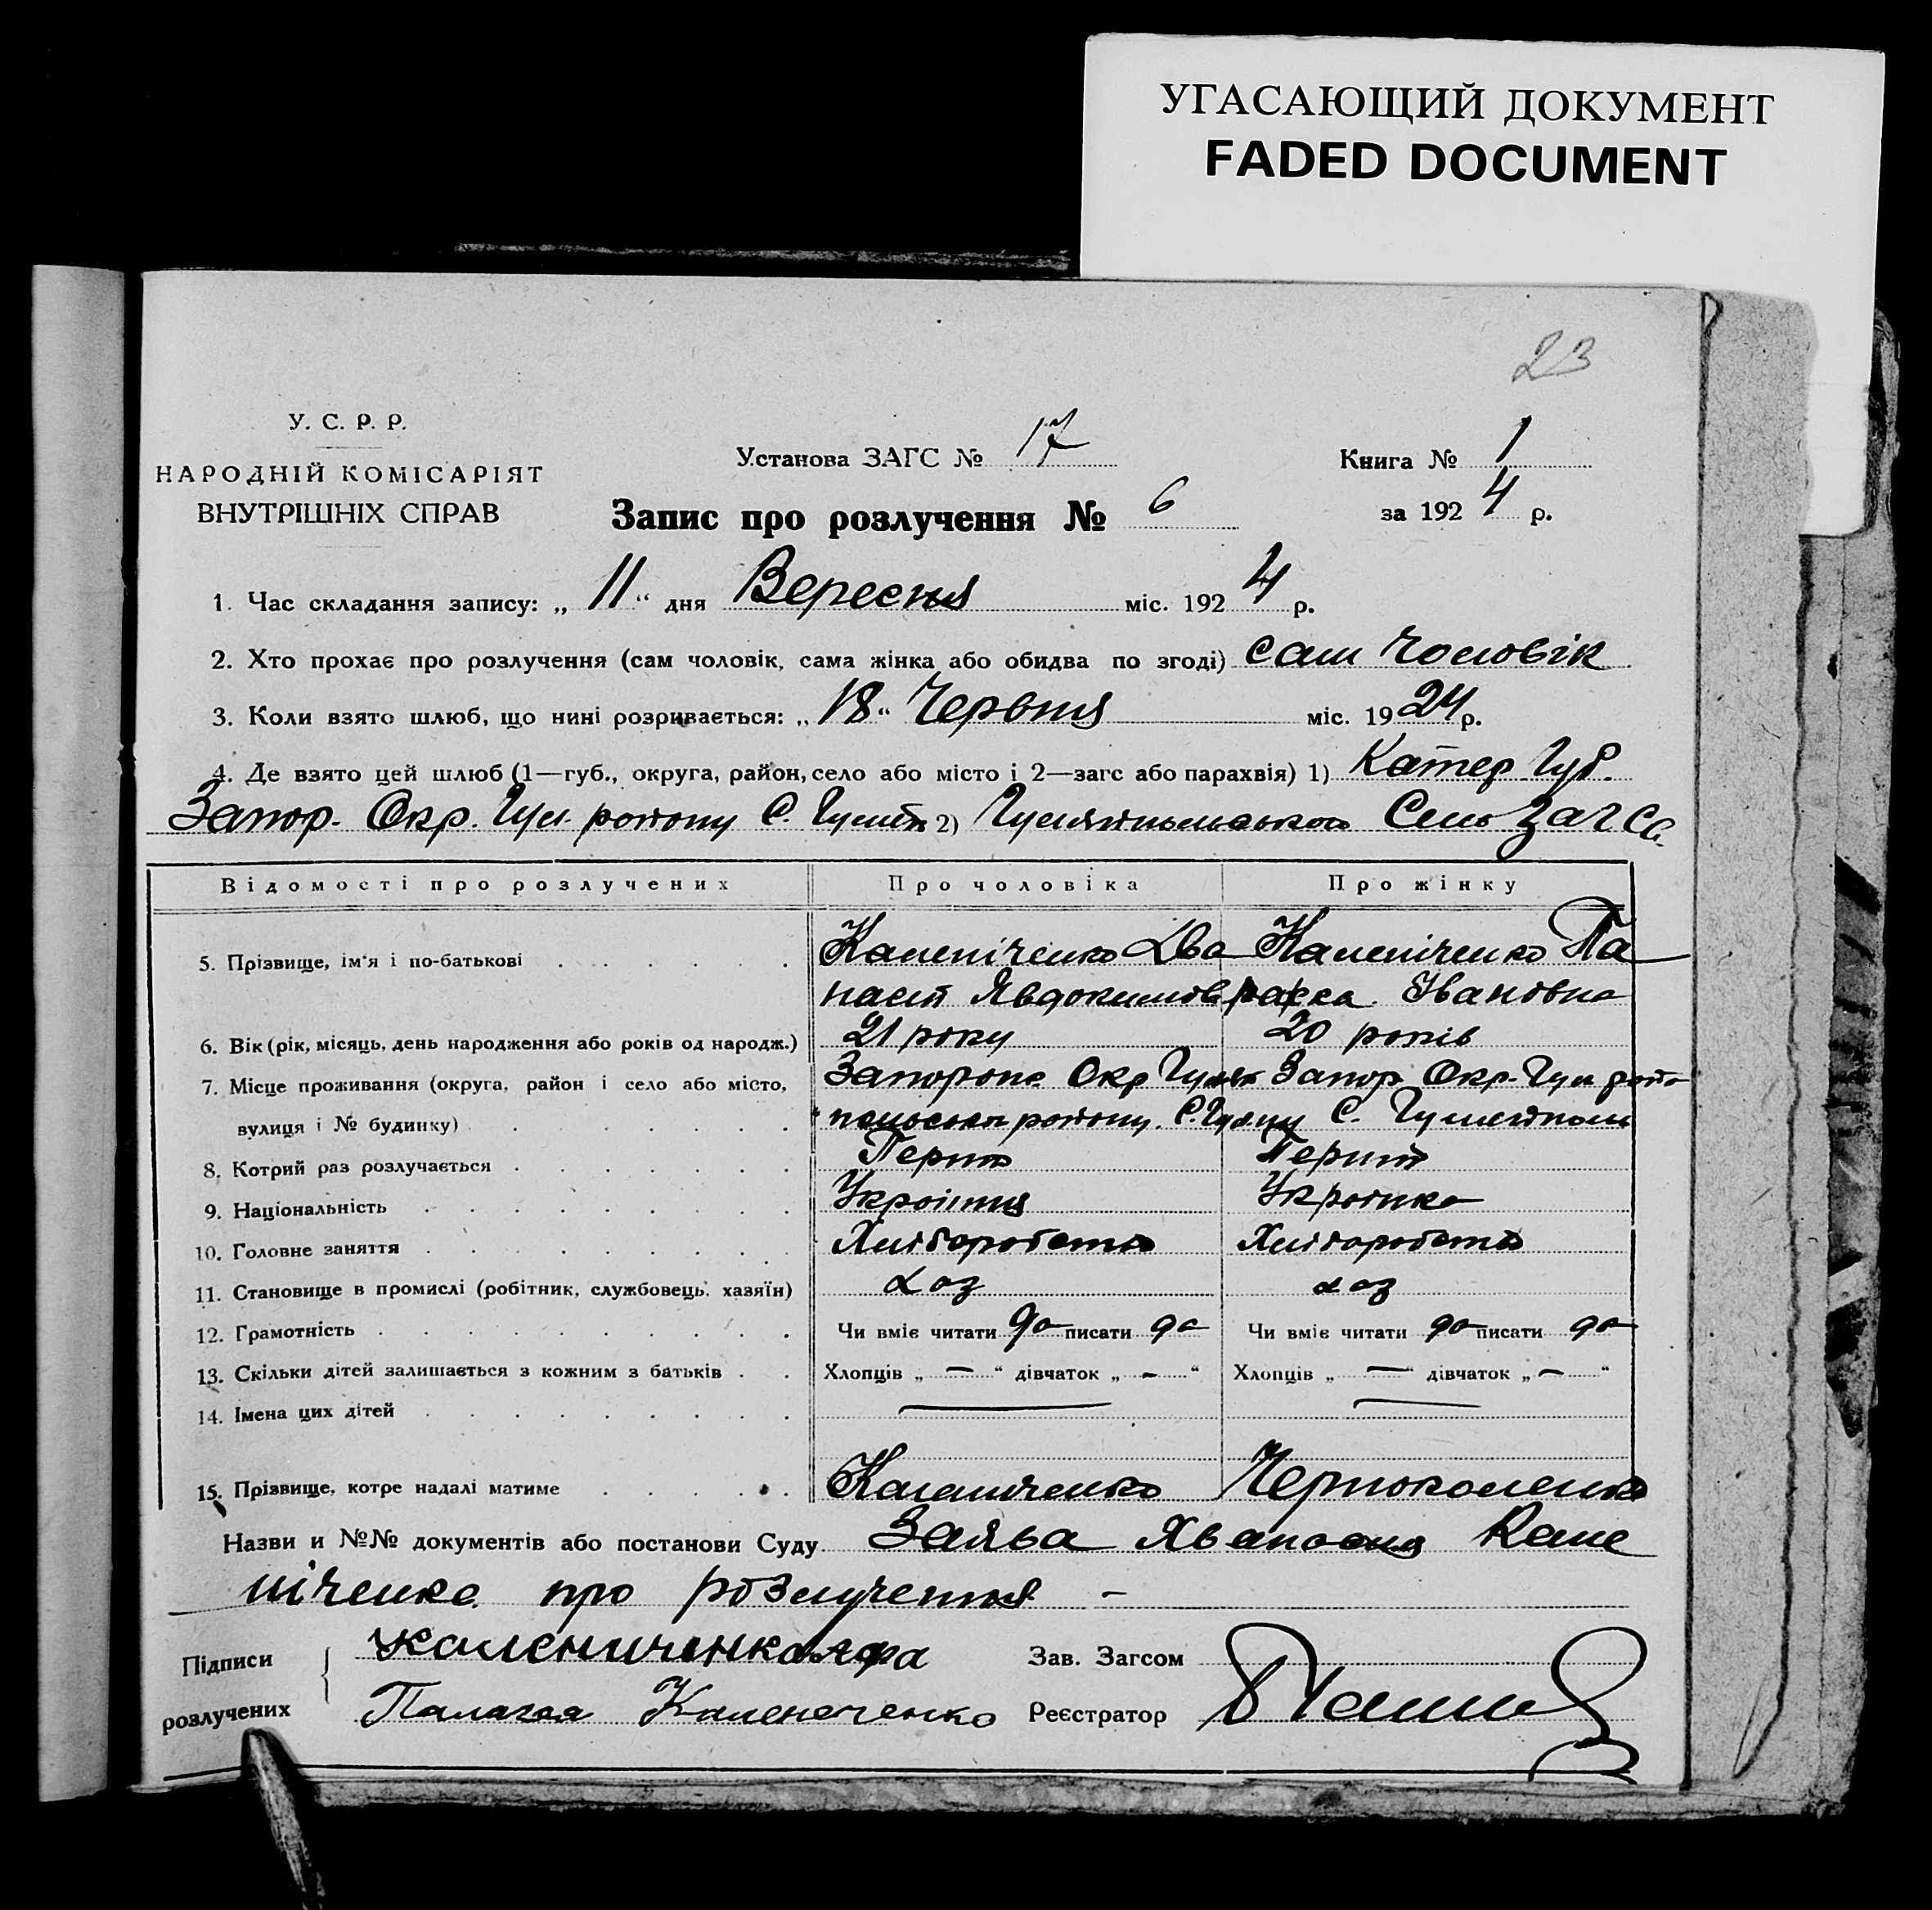 УГАСАЮЩИЙ ДОКУМЕНТ
FADED DOCUMENT
23
У. С. Р. Р.
НАРОДНІЙ КОМІСАРІЯТ
ВНУТРІШНІХ СПРАВ
Установа ЗАГС № 17
Книга № 1
за 192 4 р.
Запис про розлучення № 6
1. Час складання запису: „ 11 “ дня Вересня міс. 192 4 р.
2. Хто прохає про розлучення (сам чоловік, сама жінка або обидва по згоді) сам Чоловік
3. Коли взято шлюб, що нині розривається: „ 18 “ Червня міс. 19 24 р.
4. Де взято цей шлюб (1—губ., округа, район, село або місто і 2—загс або парахвія) 1) Катер. Губ.
Запор. Окр. Гул. району С. 2) Сель Загса
Відомості про розлучених
Про чоловіка
Про жінку
5. Прізвище, ім'я і по-батькові
Каленіченко
Каленіченко Па
Явдокимов
Івановна
6. Вік (рік, місяць, день народження або років од народж.)
21 року
20 років
7. Місце проживання (округа, район і село або місто,
вулиця і № будинку)
Окр
Запор. Окр. Гул
району
С. Гуляйполе
8. Котрий раз розлучається
Перший
Перший
9. Національність
Українка
10. Головне заняття
Хліборобств
Хліборобств
11. Становище в промислі (робітник, службовець, хазяїн)
хаз
хаз
12. Грамотність
Чи вміє читати да писати да
Чи вміє читати да писати да
13. Скільки дітей залишається з кожним з батьків
Хлопців „ — “ дівчаток „ — “
Хлопців „ — “ дівчаток „ — “
14. Імена цих дітей
15. Прізвище, котре надалі матиме
Каленіченко
Назви и №№ документів або постанови Суду Заява Кале
ніченка про розлучення —
Підписи
розлучених
Калениченко
Палагая Каленеченко
Зав. Загсом
Реєстратор